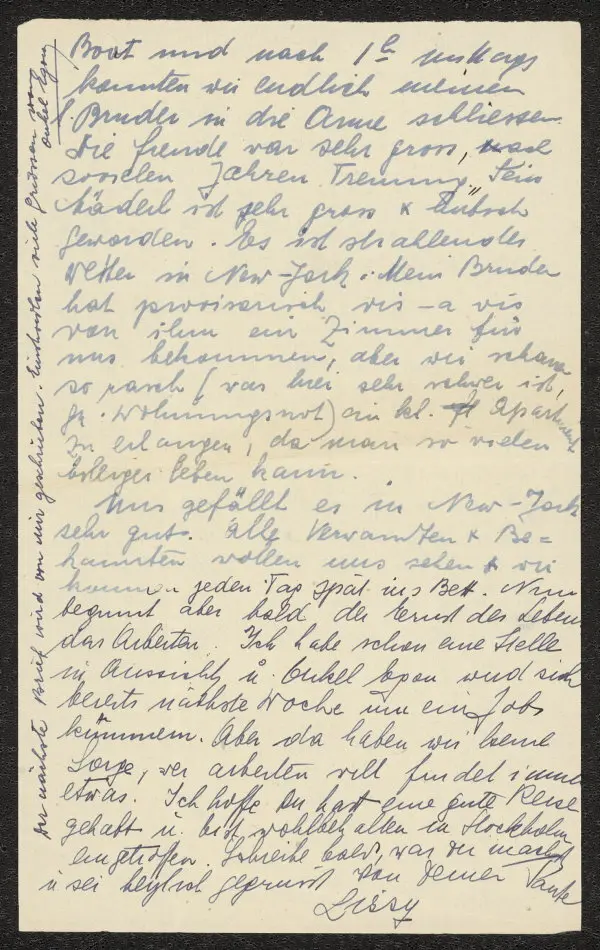 Boot und nach 1h mittags
konnten wir endlich meinen
Bruder in die Arme schliessen.
Die Freude war sehr gross, nach
sovielen Jahren Trennung. Sein
Mäderl ist sehr gross & hübsch
geworden. Es ist strahlendes
Wetter in New-York. Mein Bruder
hat provisorisch vis-a vis
von ihm ein Zimmer für
uns bekommen, aber wir schauen
so rasch (was hier sehr schwer ist,
gr. Wohnungsnot) ein kl. Apartment
zu erlangen, da man so vielen
billiger leben kann.
Uns gefällt es in New-York
sehr gut. Alle Verwandten & Be=
kannten wollen uns sehen & wir
kommen jeden Tag spät ins Bett. Nun
beginnt aber bald der Ernst des Lebens
das Arbeiten. Ich habe schon eine Stelle
in Aussicht, u. Onkel Egon wird sich
bereits nächste Woche um ein Job
kümmern. Aber da haben wir keine
Sorge, wer arbeiten will findet immer
etwas. Ich hoffe Du hast eine gute Reise
gehabt u. bist wohlbehalten in Stockholm
eingetroffen. Schreibe bald, was Du machst
u sei herzlich gegrüsst von Deiner Tante
Lissy
Der nächste Brief wird von mir geschrieben. Einstweilen viele Grüsse von
Onkel Egon